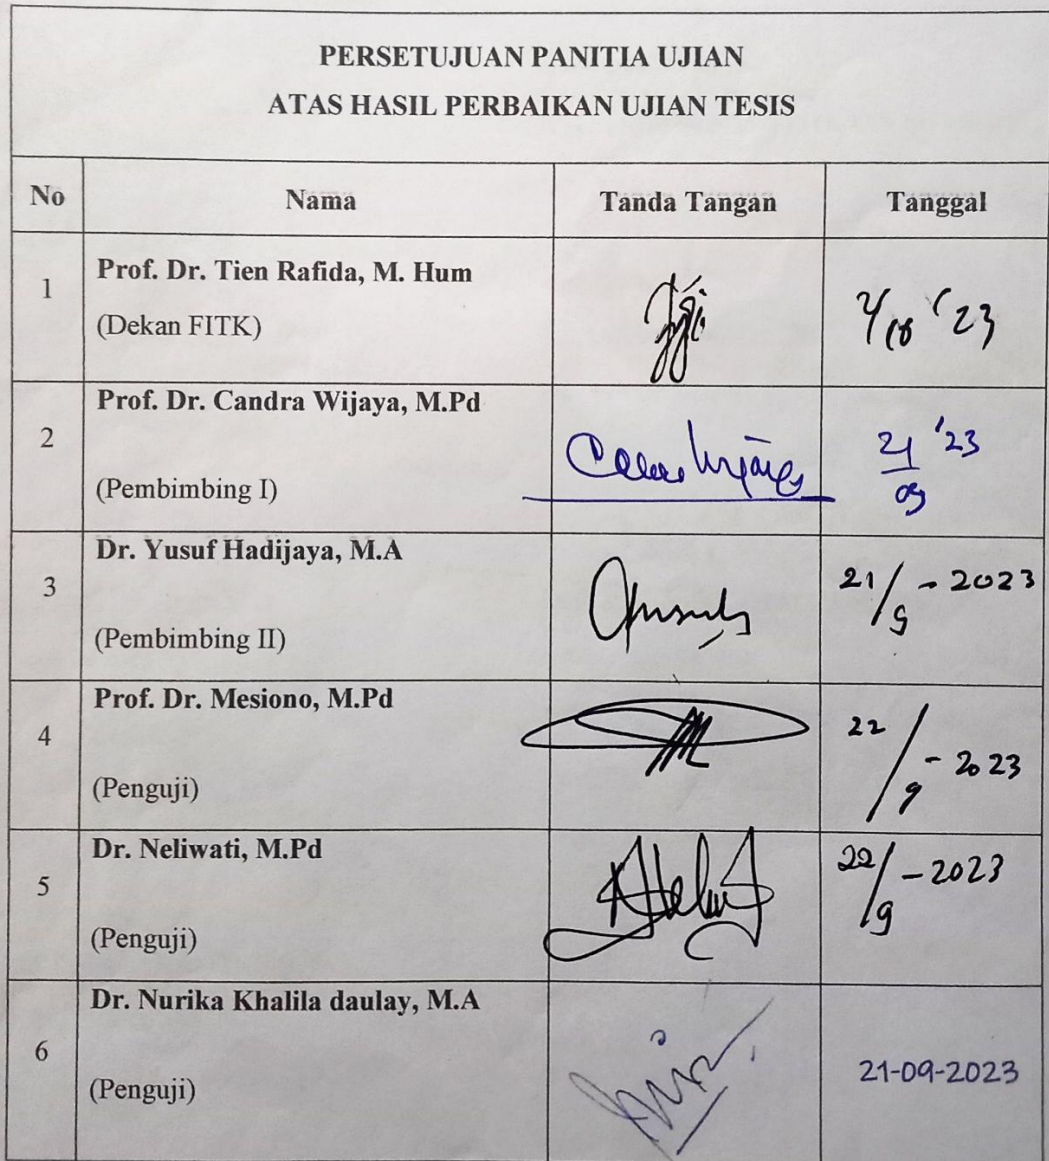 PERSETUJUAN PANITIA UJIAN
ATAS HASIL PERBAIKAN UJIAN TESIS
No Nama Tanda Tangan Tanggal
1 Prof. Dr. Tien Rafida, M. Hum
(Dekan FITK)
2 Prof. Dr. Candra Wijaya, M.Pd
(Pembimbing I)
21/09 '23
3 Dr. Yusuf Hadijaya, M.A
(Pembimbing II)
21/9 - 2023
4 Prof. Dr. Mesiono, M.Pd
(Penguji)
22/9 - 2023
5 Dr. Neliwati, M.Pd
(Penguji)
22/9 - 2023
6 Dr. Nurika Khalila daulay, M.A
(Penguji)
21-09-2023